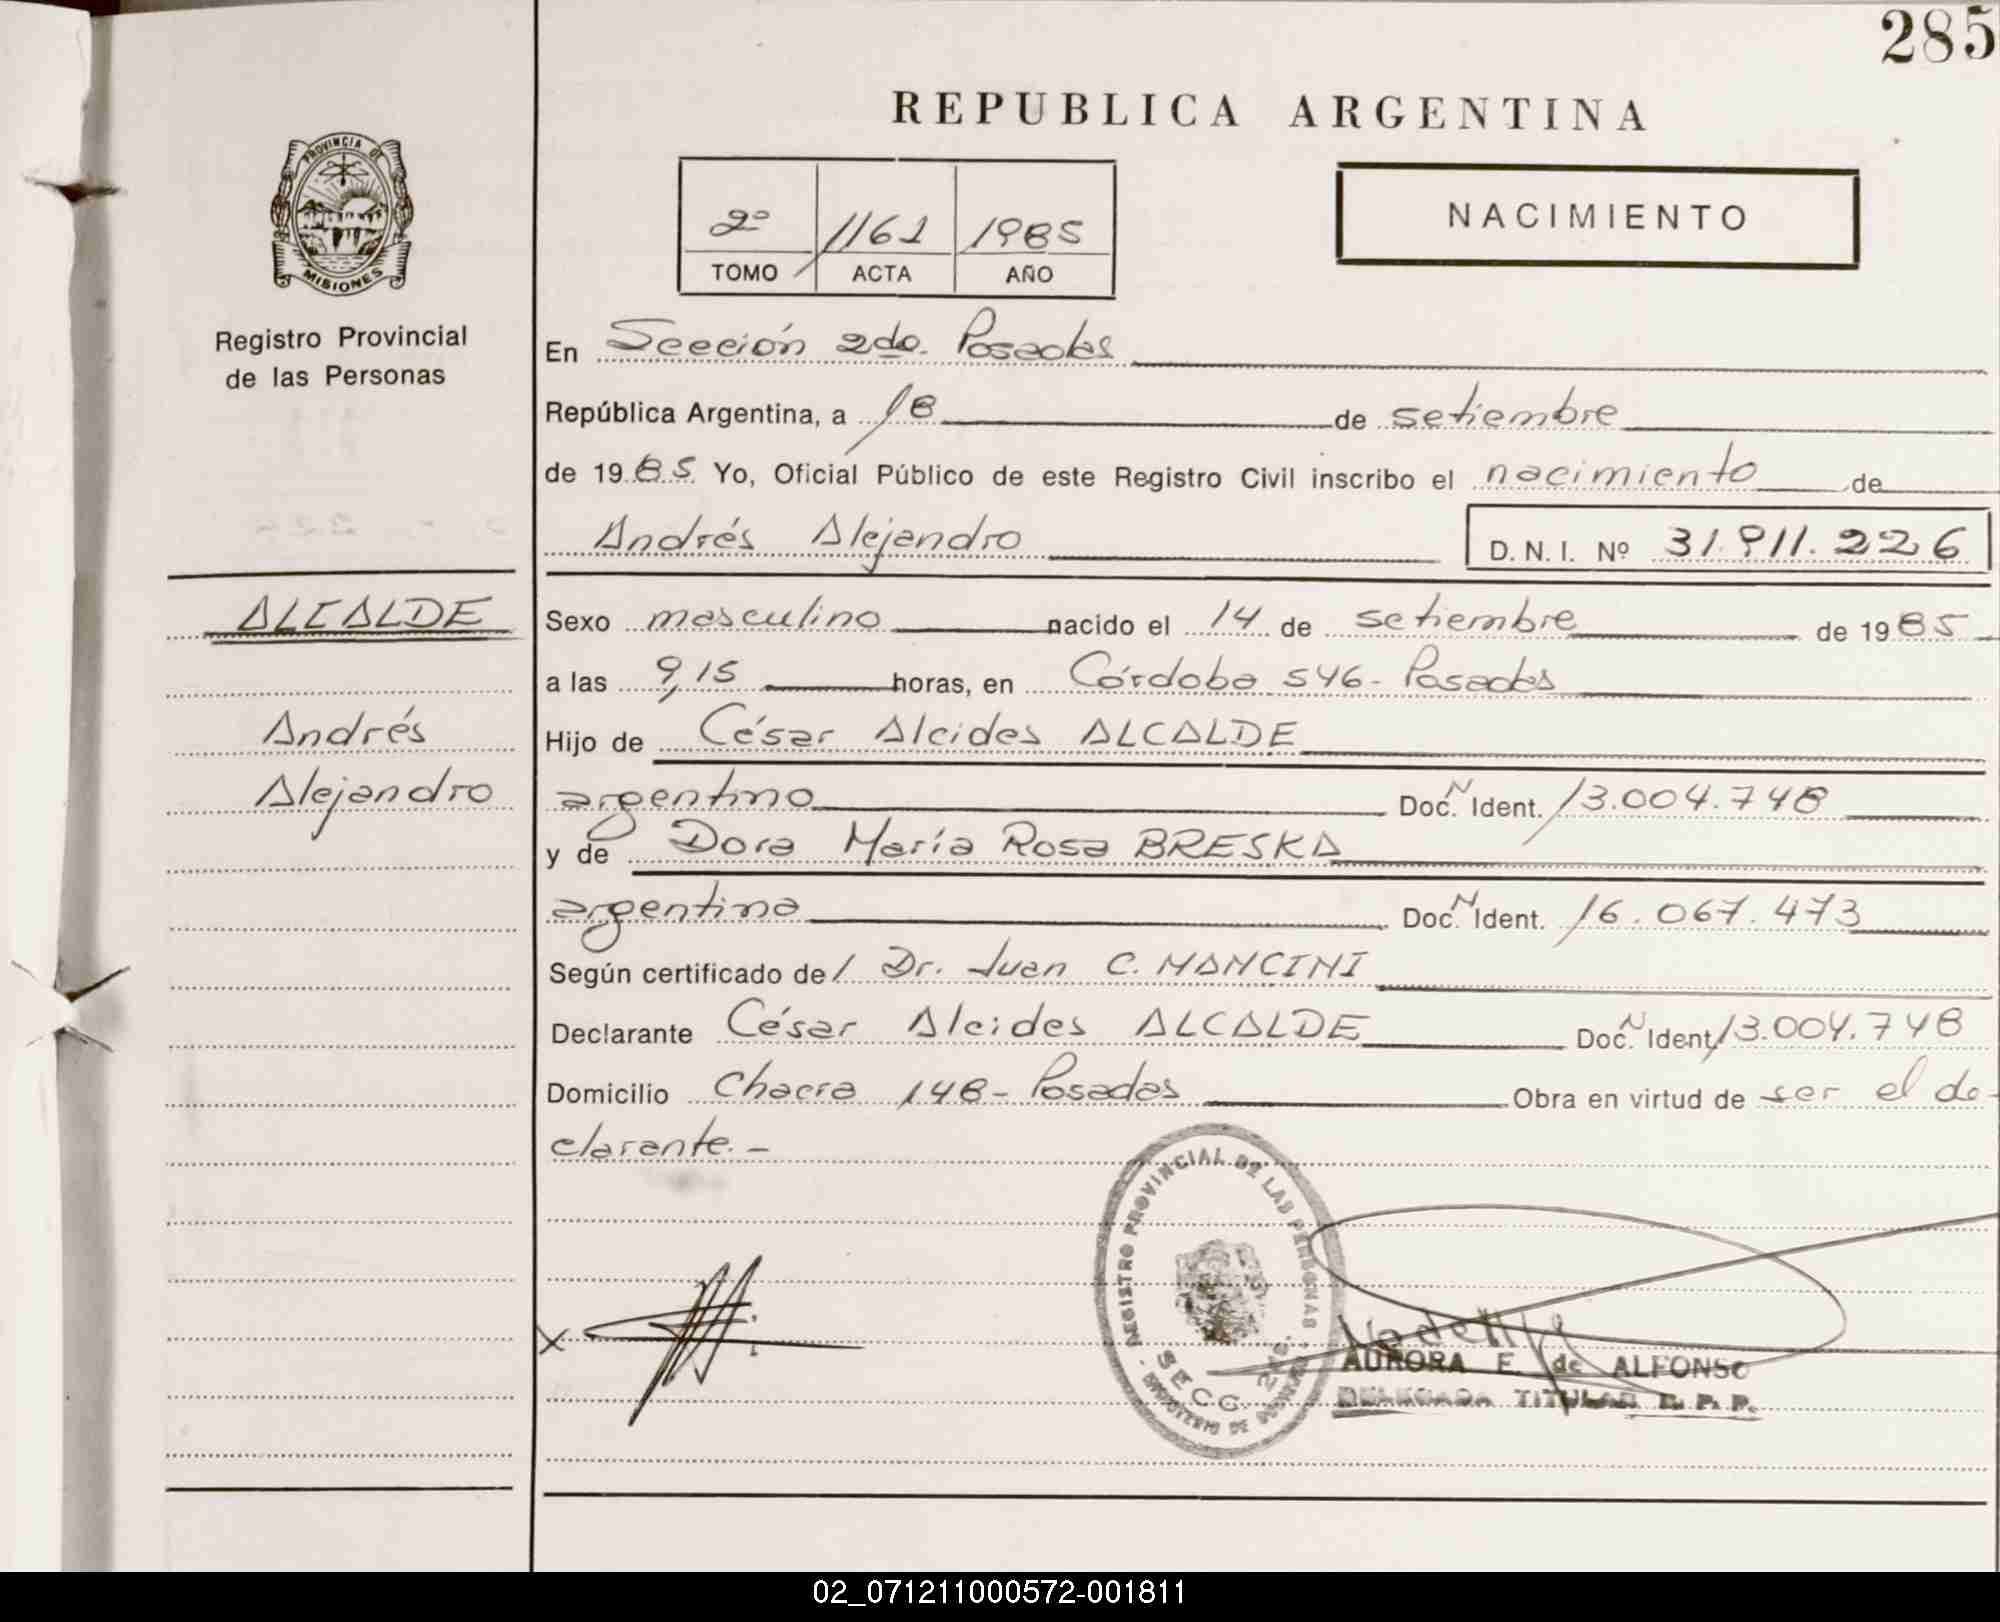 285
REPUBLICA ARGENTINA
PROVINCIA DE
MISIONES
Registro Provincial
de las Personas
2º 1161 1985
TOMO ACTA AÑO
NACIMIENTO
En Sección 2da. Posadas
República Argentina, a 18 de setiembre
de 1985 Yo, Oficial Público de este Registro Civil inscribo el nacimiento de
Andrés Alejandro D. N. I. Nº 31.911.226
ALCALDE
Andrés
Alejandro
Sexo masculino nacido el 14 de setiembre de 1985
a las 9,15 horas, en Córdoba 546- Posadas
Hijo de César Alcides ALCALDE
argentino Doc. N Ident. 13.004.748
y de Dora María Rosa BRESKA
argentina Doc. N Ident. 16.067.473
Según certificado de/ Dr. Juan C. MANCINI
Declarante César Alcides ALCALDE Doc. N Ident. 13.004.748
Domicilio Chacra 148- Posadas Obra en virtud de ser el de-
clarante.-
REGISTRO PROVINCIAL DE LAS PERSONAS
SECC. 2da.
MINISTERIO DE GOBIERNO
X
AURORA E. de ALFONSO
DELEGADA TITULAR R. P. P.
02_071211000572-001811